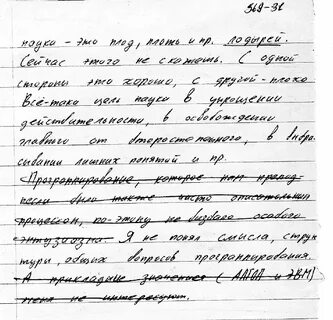 568-31
наука - это плод, плоть и пр. лодырей.
Сейчас этого не скажешь. С одной
стороны это хорошо, с другой - плохо
Всё-таки цель науки в упрощении
действительности, в освобождении
главного от второстепенного, в выбра
сывании лишних понятий и пр.
Программирование, которое нам препод
несли было также чисто описательным
процессом, по-этому не вызвало особого
энтузиазма. Я не понял смысла, струк
туры, общих вопросов программирования.
А прикладные значения (АЛГОЛ и ЭВМ)
меня не интересуют.